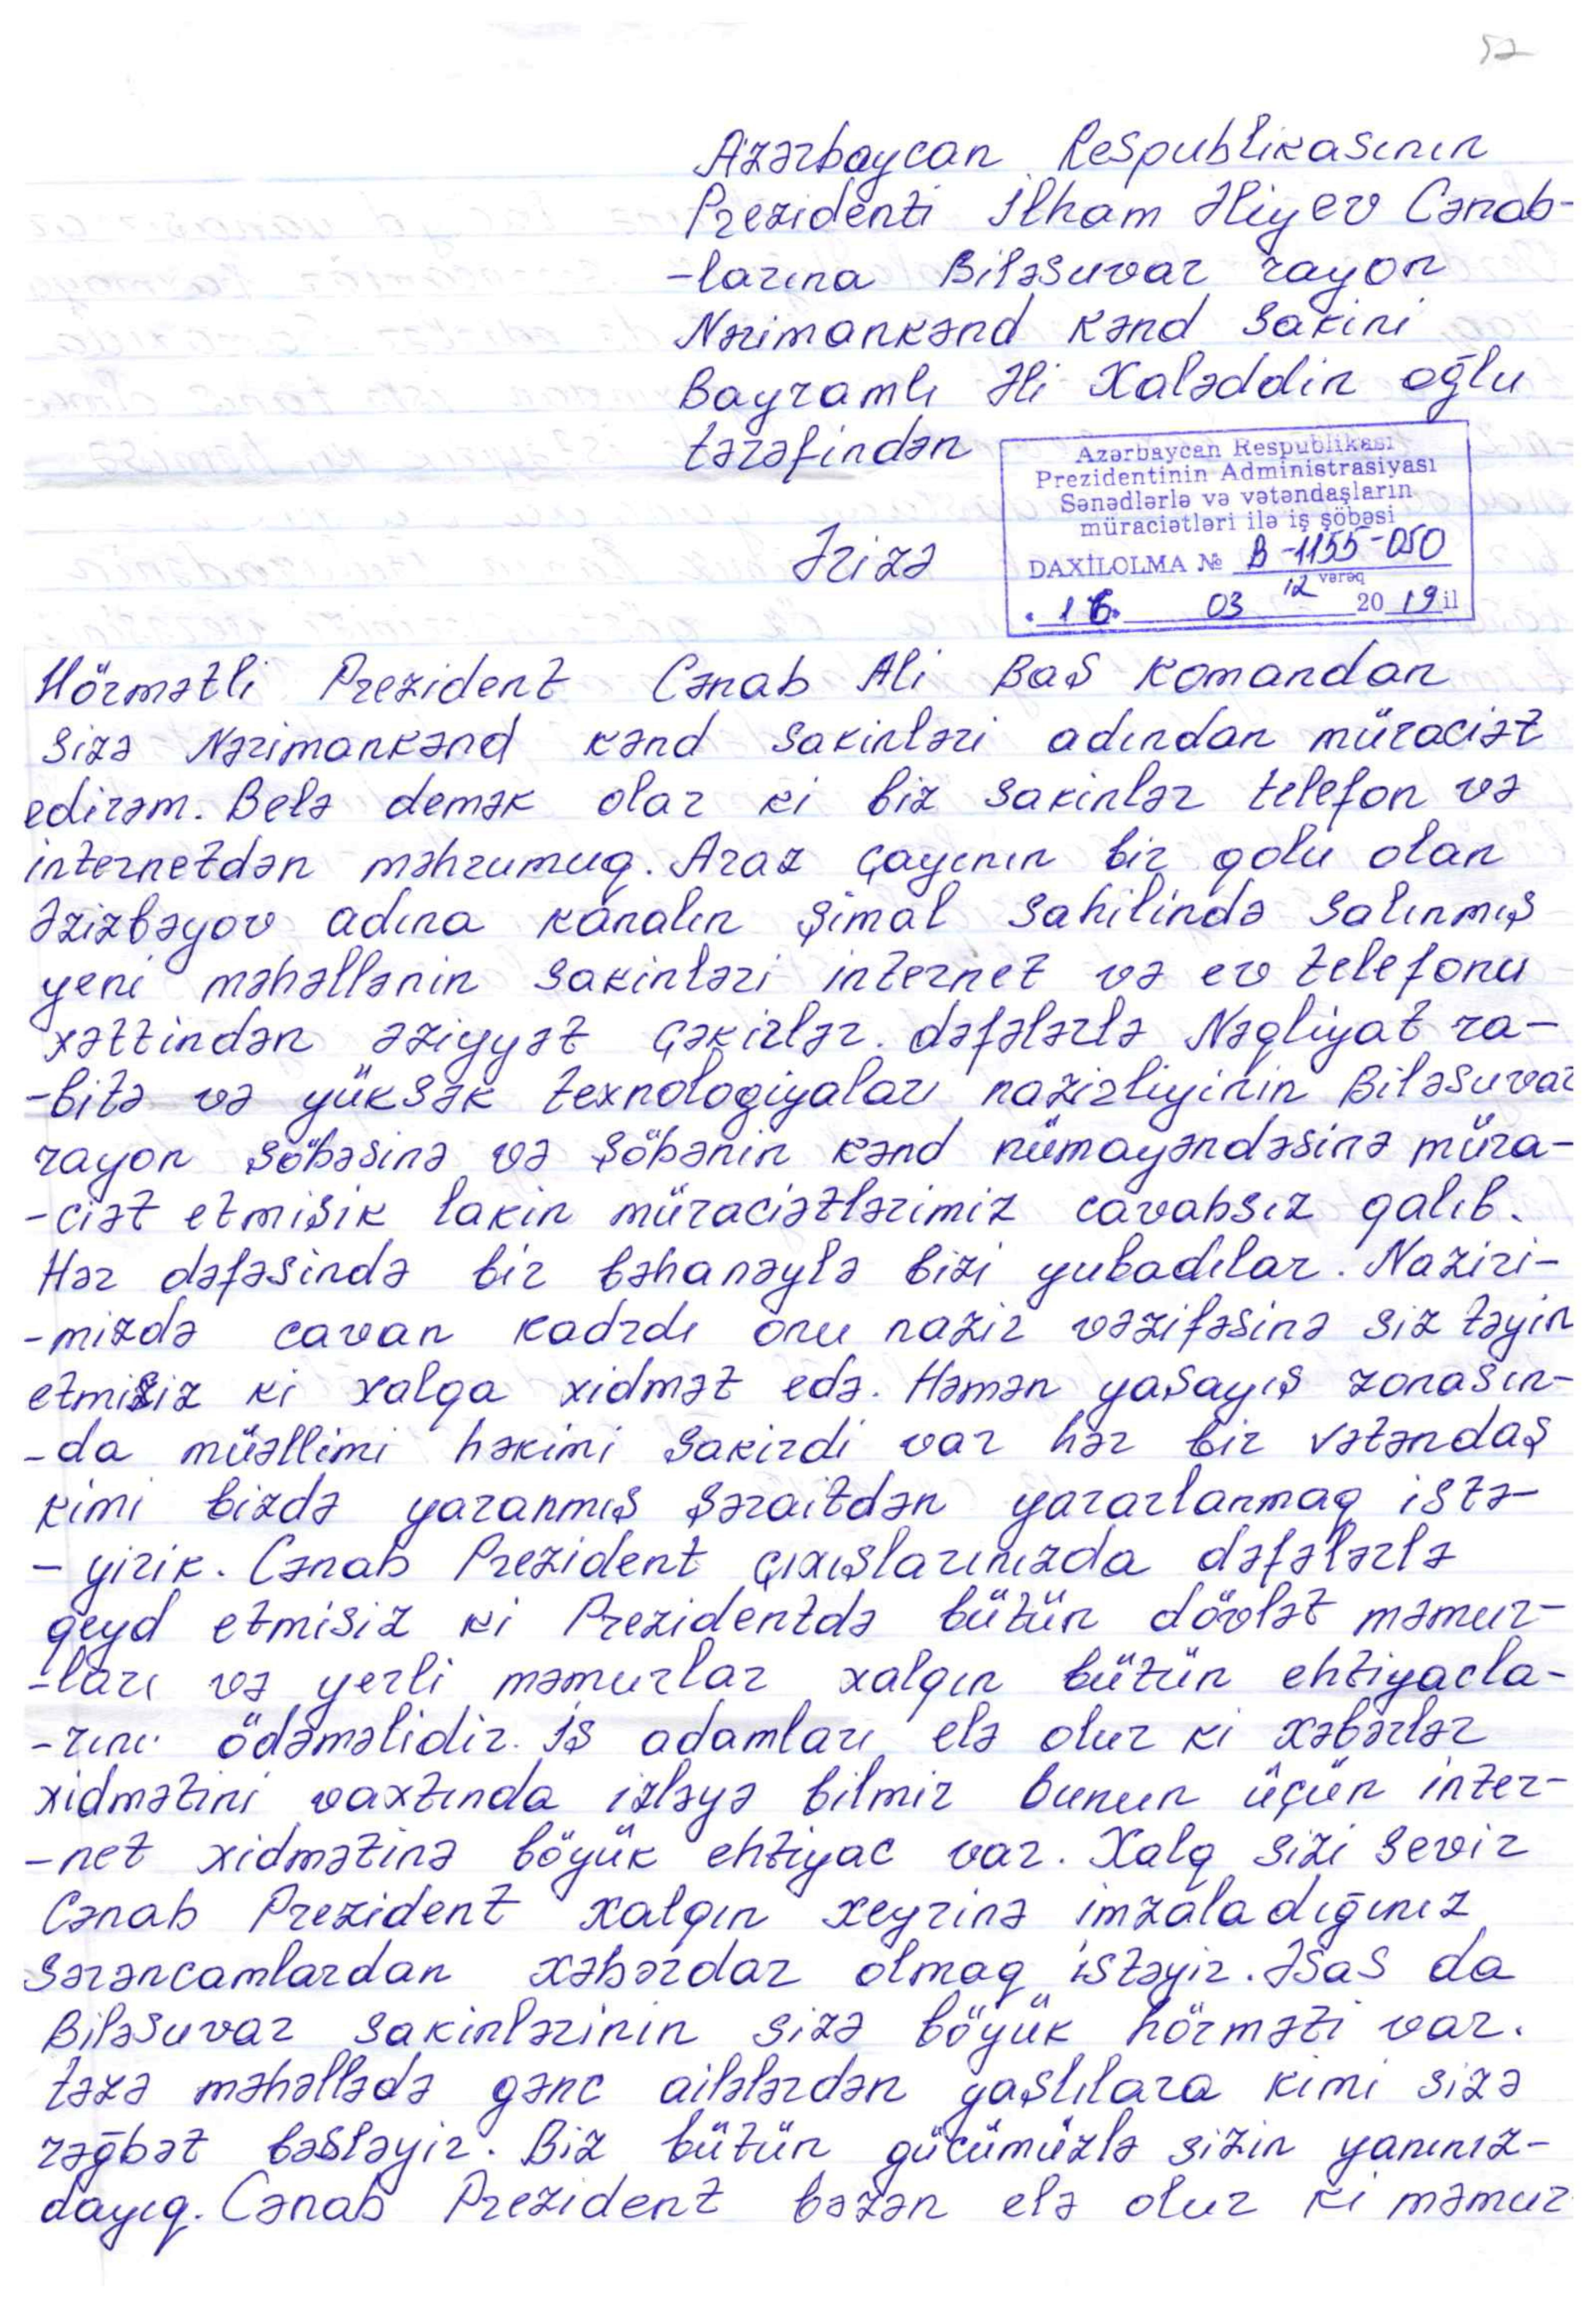 52
Azərbaycan Respublikasının
Prezidenti İlham Əliyev Cənab-
-larına Biləsuvar rayon
Nərimankənd kənd sakini
Bayramlı Əli Xaləddin oğlu
tərəfindən
Azərbaycan Respublikası
Prezidentinin Administrasiyası
Sənədlərlə və vətəndaşların
müraciətləri ilə iş şöbəsi
DAXİLOLMA № B-1155-050
12 vərəq
16 03 2019 il
Ərizə
Hörmətli Prezident Cənab Ali Baş Komandan
sizə Nərimankənd kənd sakinləri adından müraciət
edirəm. Belə demək olar ki biz sakinlər telefon və
internetdən məhrumuq. Araz çayının bir qolu olan
Əzizbəyov adına kanalın şimal sahilində salınmış
yeni məhəllənin sakinləri internet və ev telefonu
xəttindən əziyyət çəkirlər. dəfələrlə Nəqliyat ra-
-bitə və yüksək texnologiyaları nazirliyinin Biləsuvar
rayon şöbəsinə və şöbənin kənd nümayəndəsinə müra-
-ciət etmişik lakin müraciətlərimiz cavabsız qalıb.
Hər dəfəsində bir bəhanəylə bizi yubadılar. Naziri-
-mizdə cavan kadrdı onu nazir vəzifəsinə siz təyin
etmisiz ki xalqa xidmət edə. Həmən yaşayış zonasın-
-da müəllimi həkimi şakirdi var hər bir vətəndaş
kimi bizdə yaranmış şəraitdən yararlanmaq istə-
-yirik. Cənab Prezident çıxışlarınızda dəfələrlə
qeyd etmisiz ki Prezidentdə bütün dövlət məmur-
-ları və yerli məmurlar xalqın bütün ehtiyacla-
-rını ödəməlidir. İş adamları elə olur ki xəbərlər
xidmətini vaxtında izləyə bilmir bunun üçün inter-
-net xidmətinə böyük ehtiyac var. Xalq sizi sevir
Cənab Prezident xalqın xeyrinə imzaladığınız
sərəncamlardan xəbərdar olmaq istəyir. Əsas da
Biləsuvar sakinlərinin sizə böyük hörməti var.
təzə məhəllədə gənc ailələrdən yaşlılara kimi sizə
rəğbət bəsləyir. Biz bütün gücümüzlə sizin yanınız-
dayıq. Cənab Prezident bəzən elə olur ki məmur